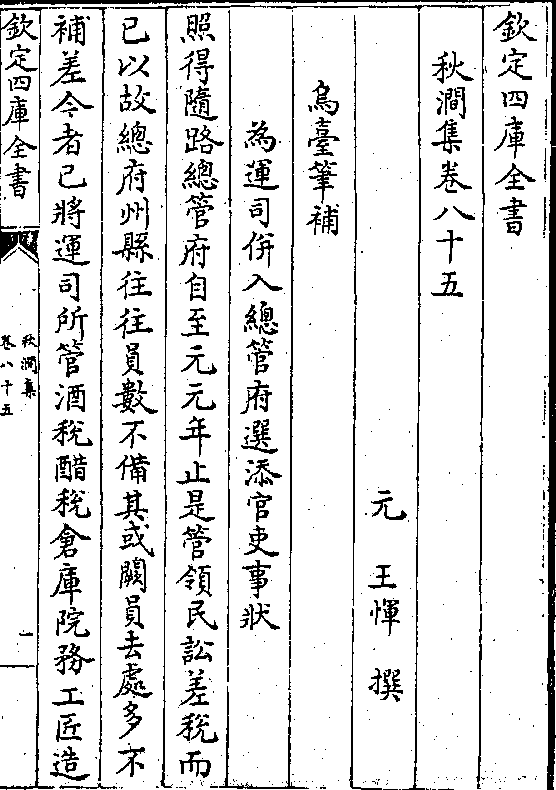 欽定四庫全書
秋澗集卷八十五
元 王惲 撰
烏臺筆補
為運司併入總管府選添官吏事狀
照得隨路總管府自至元元年止是管領民訟差稅而
已以故總府州縣往往員數不備其或闕員去處多不
補差今者已將運司所管酒稅醋稅倉庫院務工匠造
欽定四庫全書
秋澗集
卷八十五
一